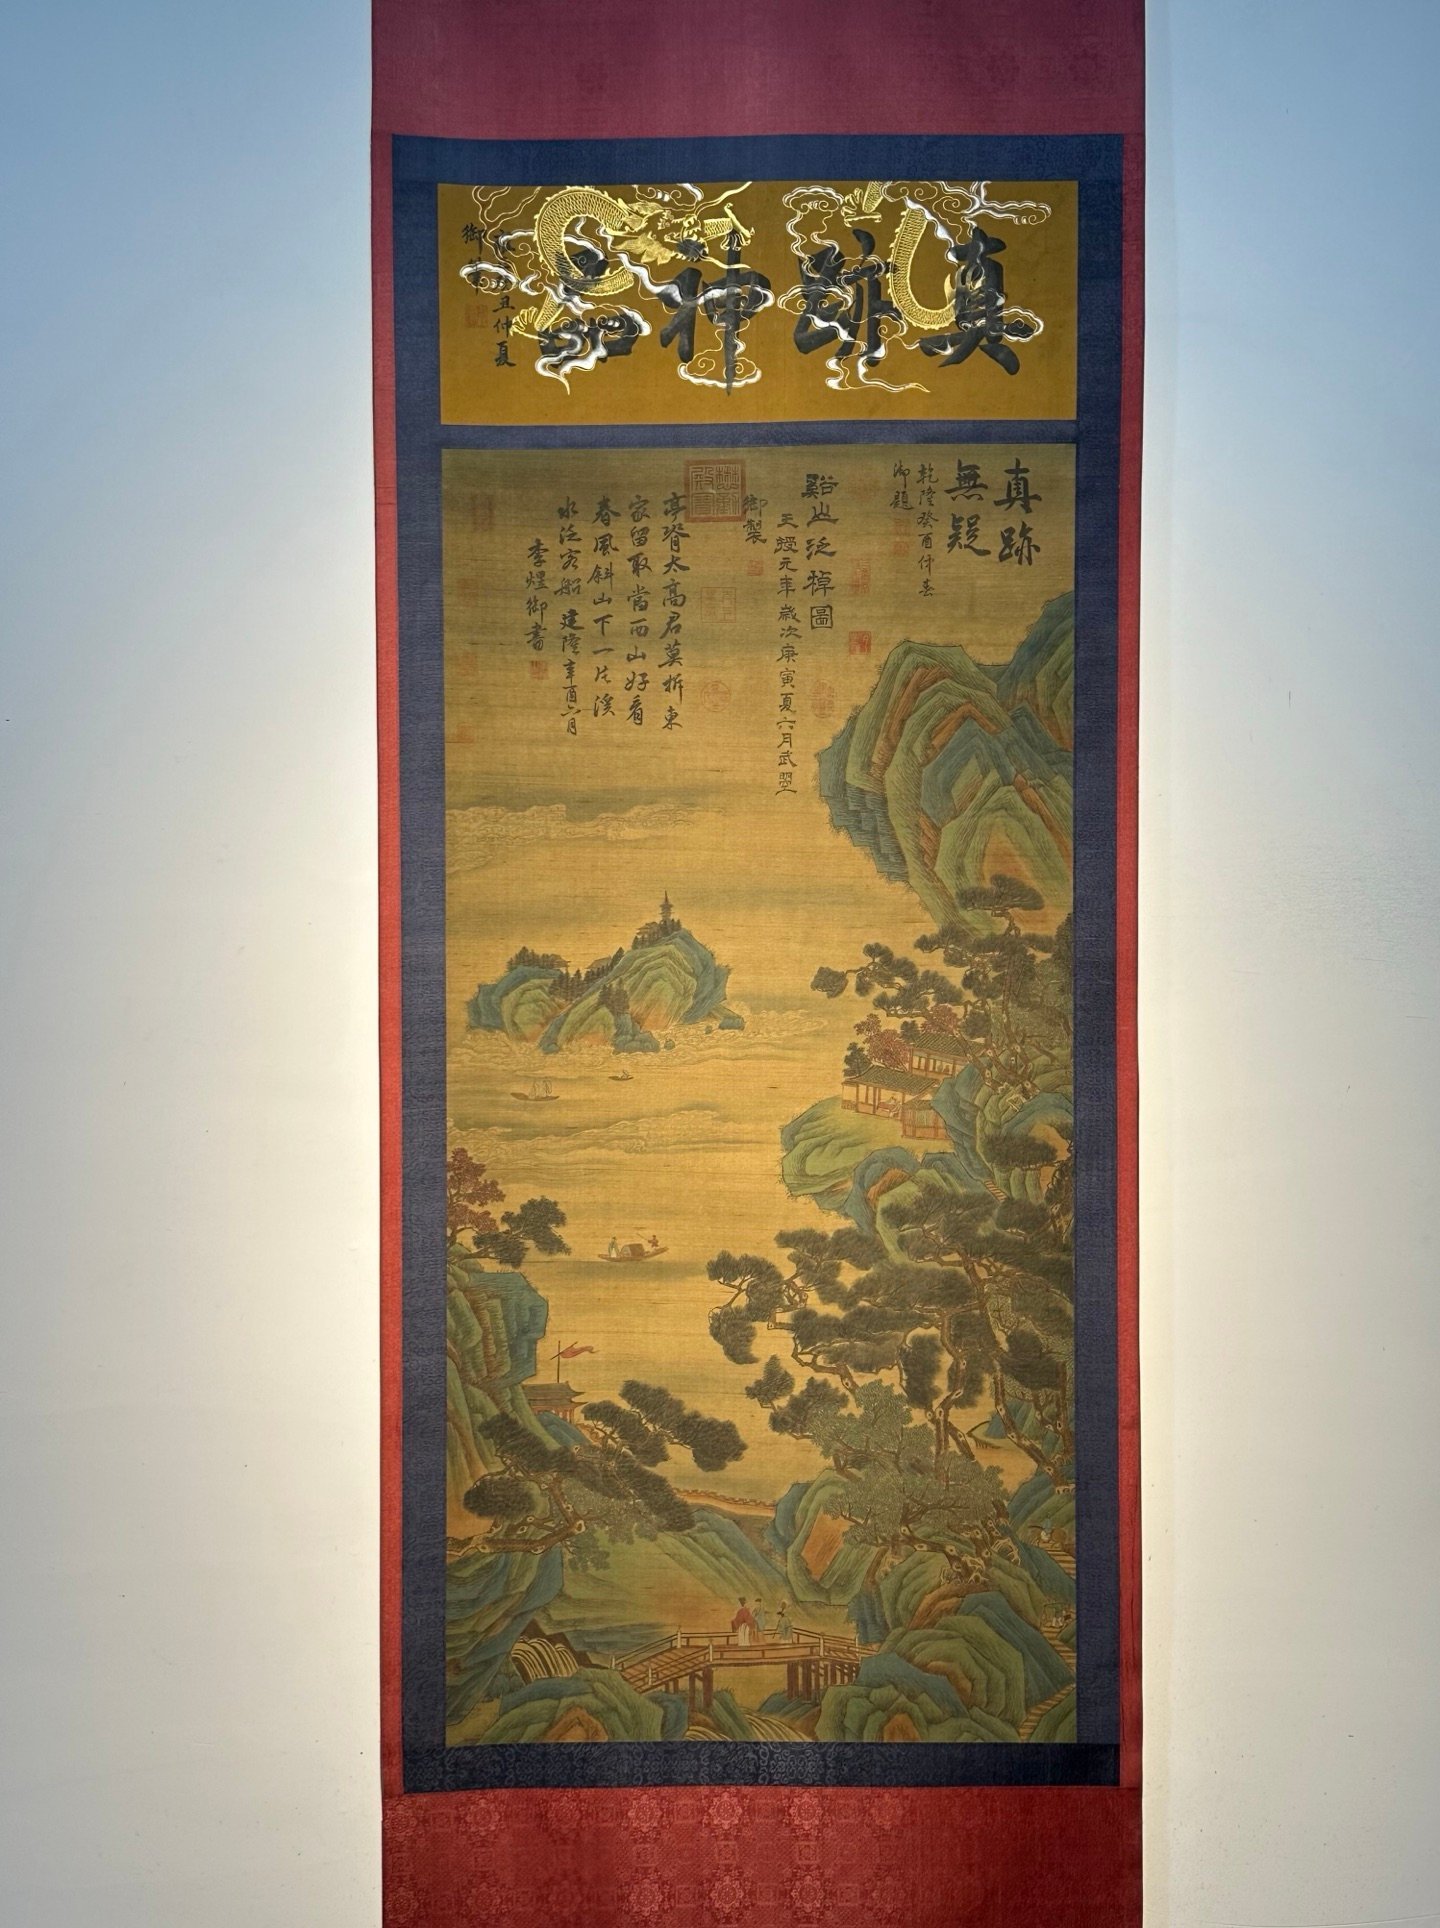 真跡神品
丑仲夏
御
真跡
無疑
乾隆癸酉仲春
御題
谿山泛棹圖
天授元年歲次庚寅夏六月武曌
御製
亭脊太高君莫拆東
家留取當西山好看
春風斜山下一片溪
水泛客船 建隆辛酉六月
李煜御書